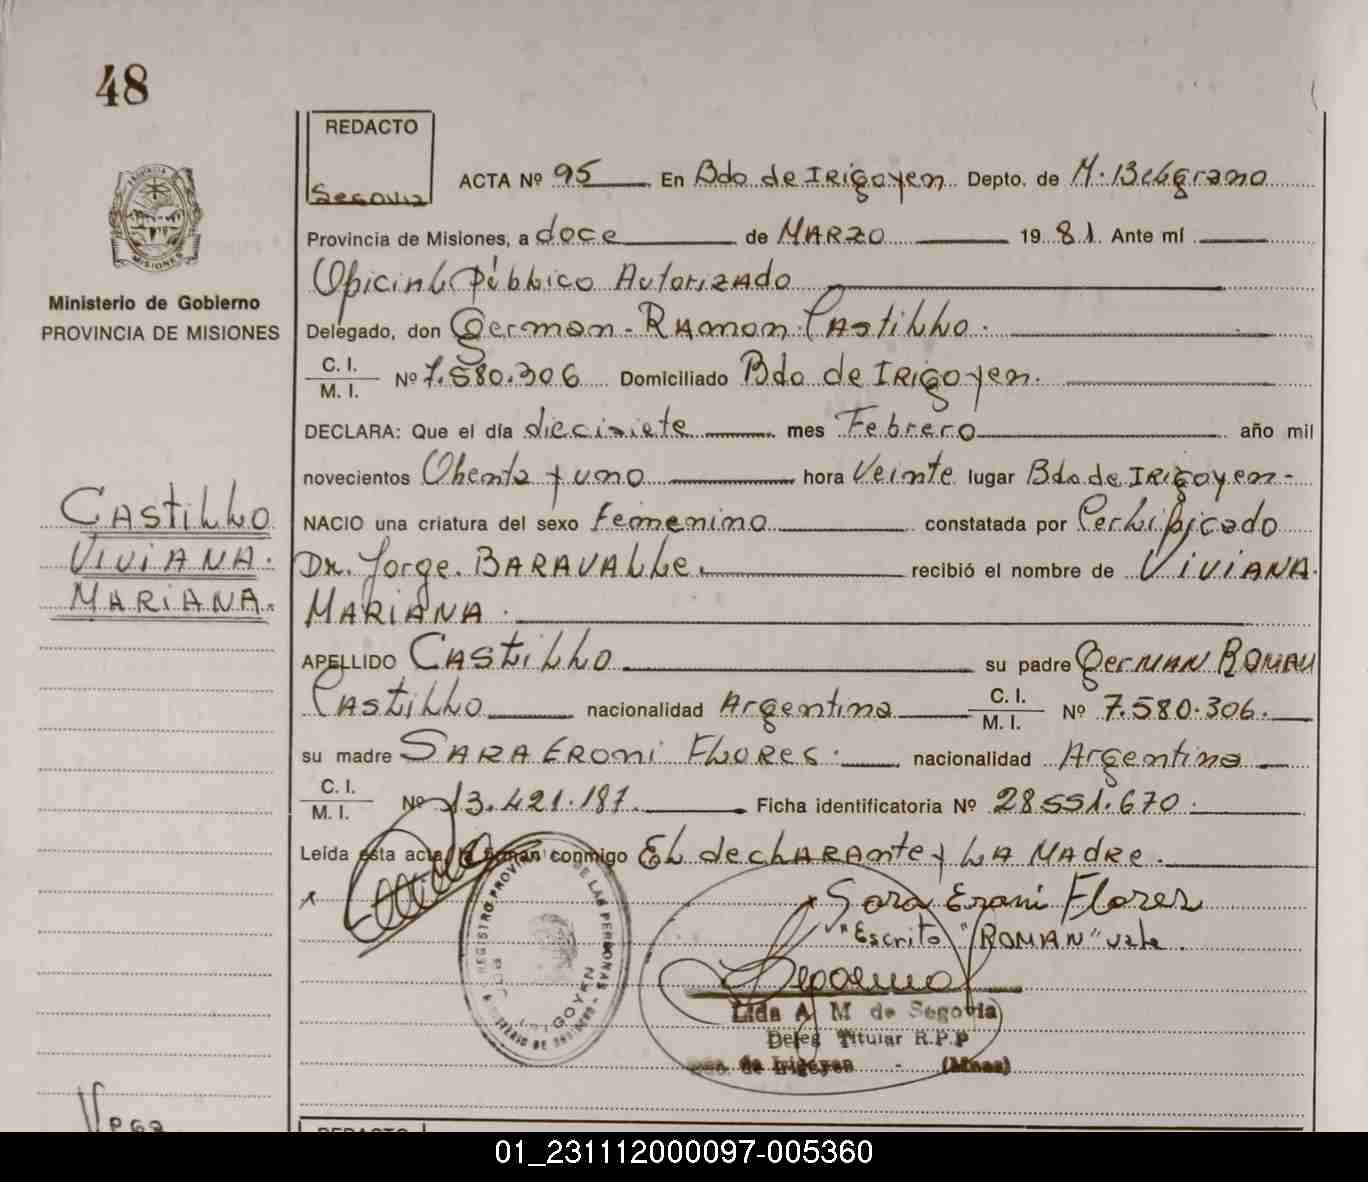 48
REDACTO
Segovia
ACTA Nº 95 En Bdo de IRigoyen Depto. de M. Belgrano
MISIONES
Provincia de Misiones, a doce de MARZO 1981. Ante mí
Ministerio de Gobierno
PROVINCIA DE MISIONES
Oficial Público Autorizado
Delegado, don German Ramon Castillo.
C. I.
M. I.
Nº 7.580.306 Domiciliado Bdo de IRIGOyen.
DECLARA: Que el día diecisiete mes Febrero año mil
novecientos Ochenta y uno hora Veinte lugar Bdo de IRIGOyen-
NACIO una criatura del sexo Femenino constatada por Certificado
CASTILLO
VIVIANA.
MARIANA.
Dr. Jorge. BARAVALLE. recibió el nombre de VIVIANA.
MARIANA.
APELLIDO CASTILLO su padre GerMAN ROMAN
CASTILLO nacionalidad Argentina C. I.
M. I. Nº 7.580.306.
su madre SARA ERONI FLORES. nacionalidad Argentina
C. I.
M. I.
Nº 13.421.187. Ficha identificatoria Nº 28.551.670.
Leída esta acta, la firman conmigo EL decLARAnte y LA MADRE.
Sara Eroni Flores
"Escrito "ROMAN" vale.
REGISTRO PROVINCIAL DE LAS PERSONAS
IRIGOYEN
MINISTERIO DE GOBIERNO
Lida A M de Segovia
Deleg Titular R.P.P
Bdo. de Irigoyen - (Mnes)
Vega
REDACTO
01_231112000097-005360